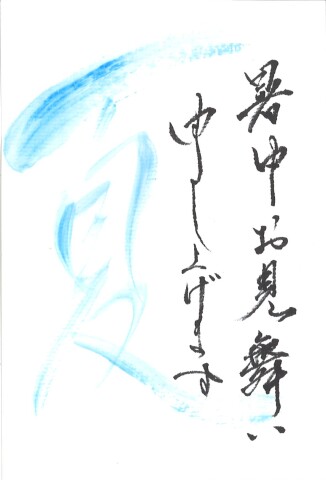 暑中お見舞い
申し上げます
夏